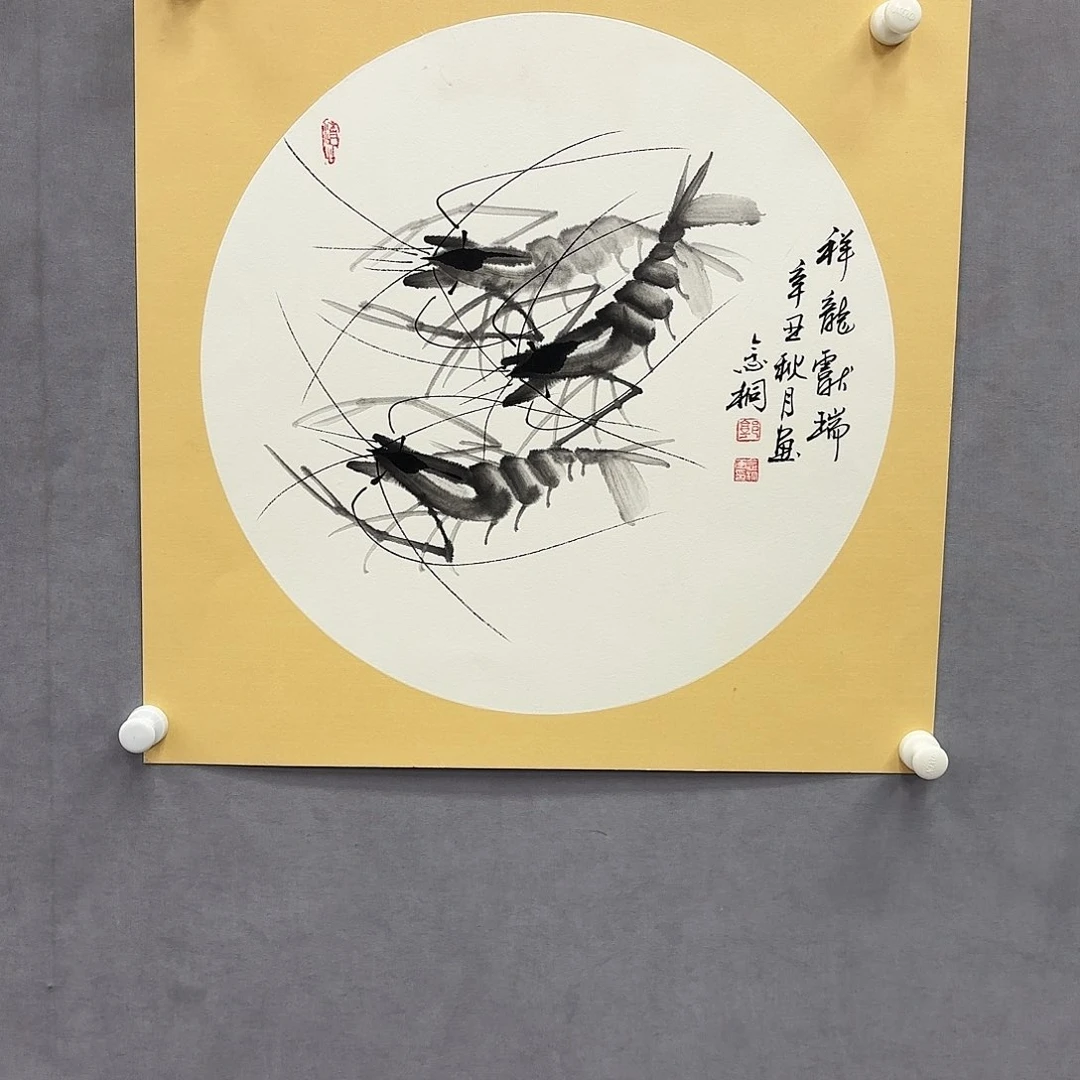 祥龍獻瑞
辛丑秋月画
念桐